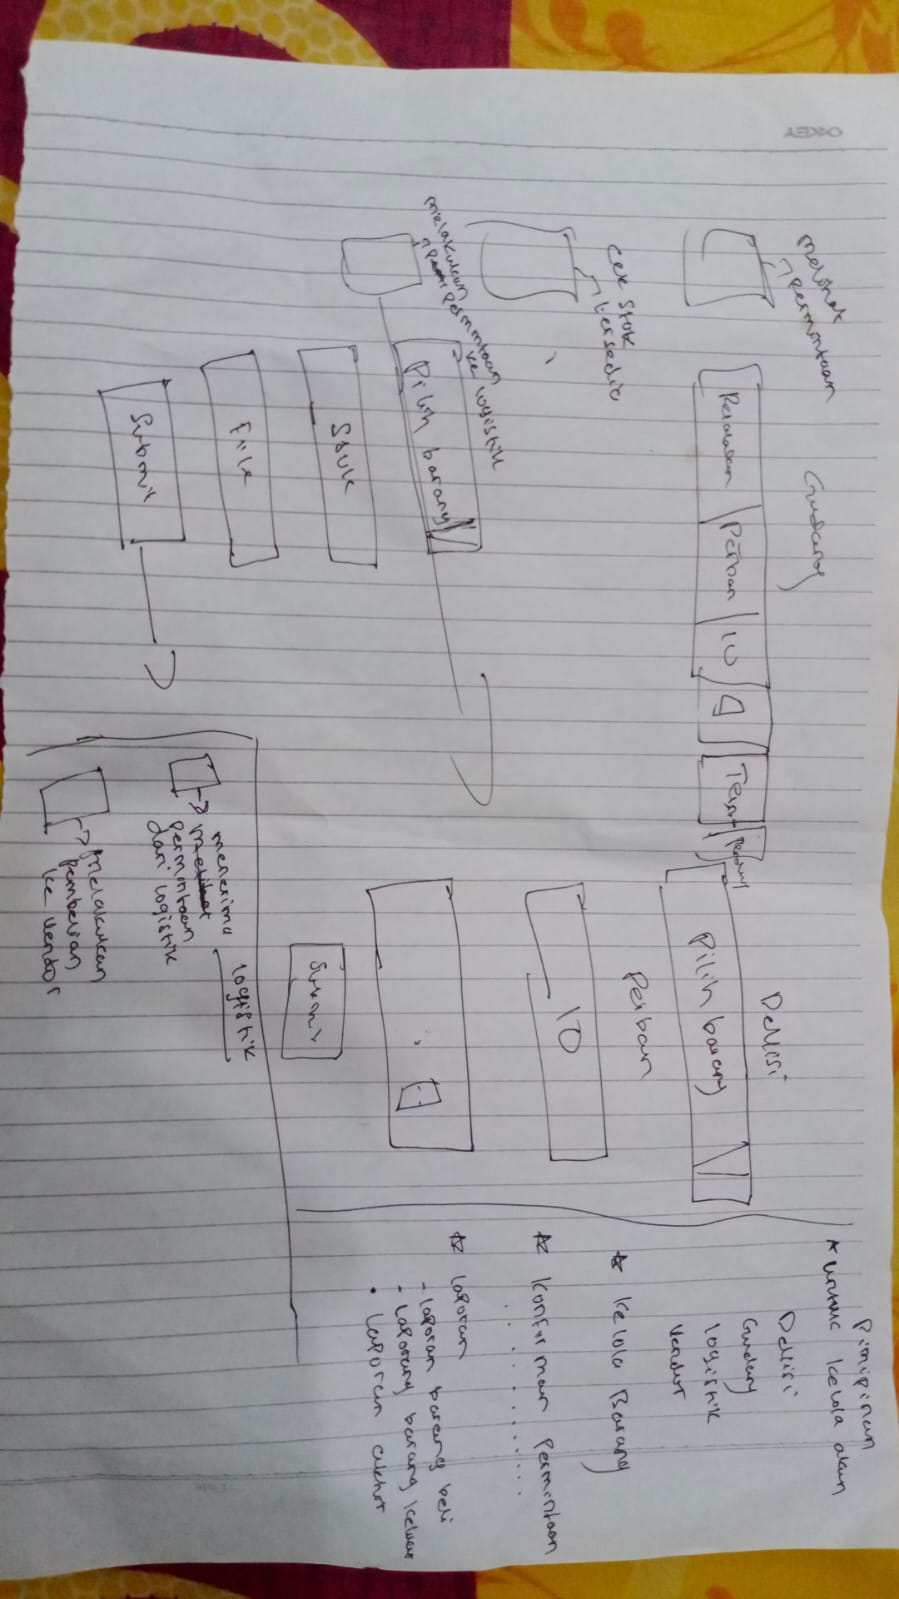 OKEY
Melihat
permintaan
Gudang
Perban
10
Cek Stok
tersedia
melakukan
permintaan
ke logistik
Pilih barang
Stok
File
Submit
Devisi
Pilih barang
Perban
10
Submit
logistik
menerima
permintaan
dari logistik
Melakukan
pembelian
ke vendor
Pimpinan
* untuk kelola akun
Devisi
Gudang
logistik
Vendor
* Kelola Barang
* Konfirman Permintaan
* Laporan
- laporan barang beli
- laporang barang keluar
• laporan akhir
Date